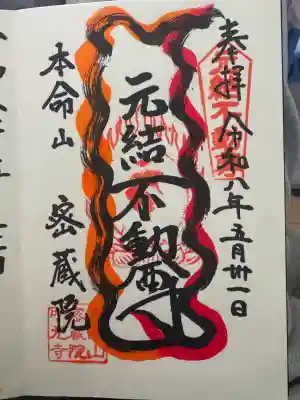 奉拝 令和八年五月卅一日
元結不動尊
本命山 密蔵院